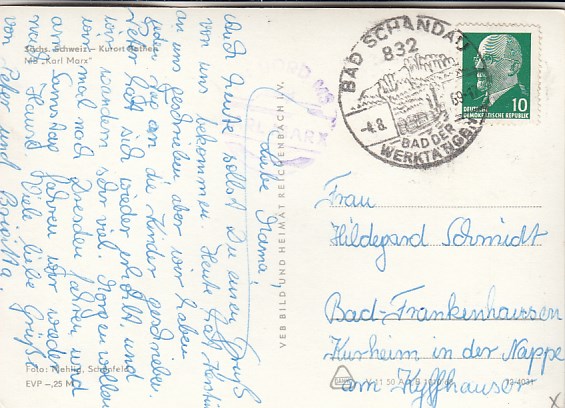 Sächs. Schweiz – Kurort Rathen
MS „Karl Marx"
Liebe Mama!
Auch heute sollst Du einen Gruß
von uns bekommen. Heute hat
an uns geschrieben aber wir haben
jeden Tag an die Kinder geschrieben.
Peter hat sich wieder erholt und
wir wandern sehr viel. Morgen wollen
wir mal nach Dresden fahren und
am Samstag fahren wir wieder
nach Hause. Viele liebe Grüße
von Peter und Brigitta.
Foto: Mehlig, Schönfeld
EVP –,25 M
VEB BILD UND HEIMAT REICHENBACH I. V.
BAD SCHANDAU 1
832
-4.8.
BAD DER
WERKTÄTIGEN
10
DEUTSCHE
DEMOKRATISCHE REPUBLIK
Frau
Hildegard Schmidt
Bad-Frankenhausen
Kurheim in der Nappe
am Kyffhäuser